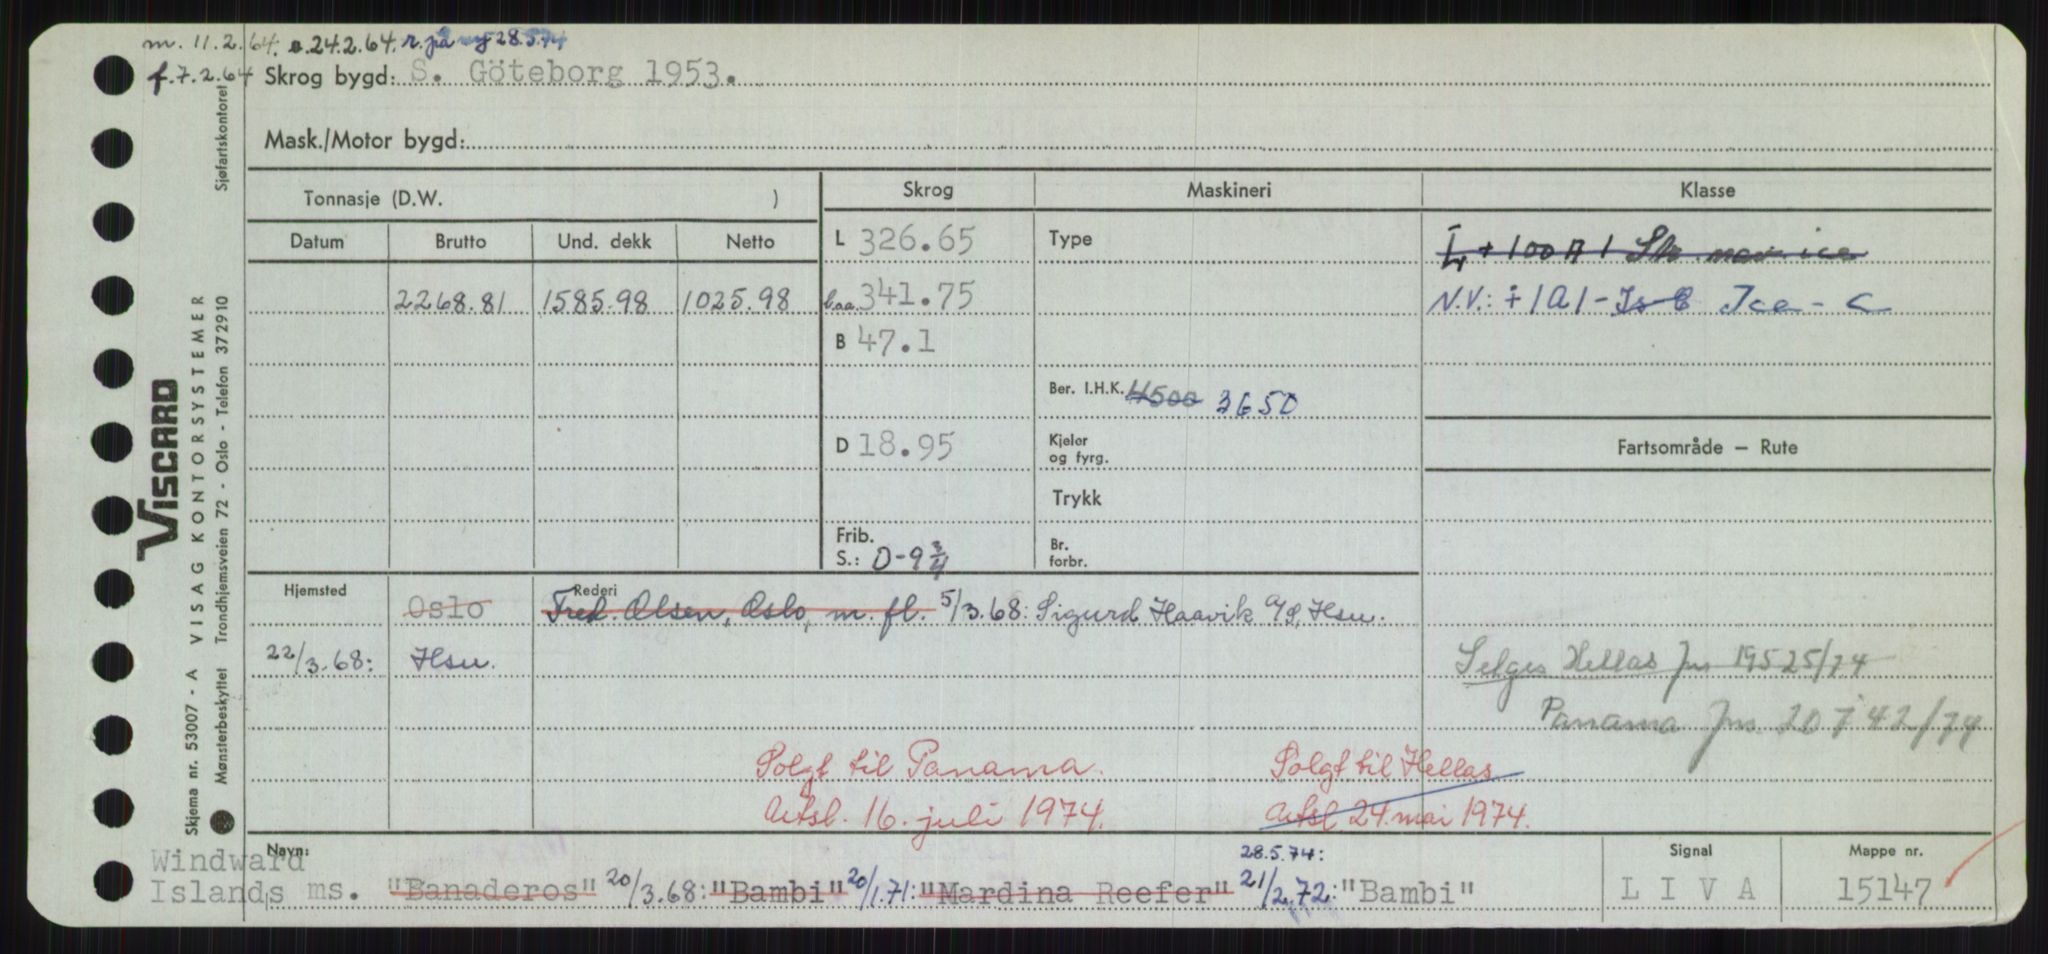 m. 11.2.64. a.24.2.64. r. på ny 28.5.74
f.7.2.64 Skrog bygd: S. Göteborg 1953.
Mask./Motor bygd:
Tonnasje (D.W. ) Skrog Maskineri Klasse
Datum Brutto Und. dekk Netto L 326.65 Type Ł + 100 A 1 Str. nav. ice
2268.81 1585.98 1025.98 b.aa. 341.75 N.V.: + 1A1 - Is-C Ice - C
B 47.1
Ber. I.H.K. 4500 3650
D 18.95 Kjeler og fyrg. Fartsområde — Rute
Trykk
Frib. S.: 0-9 3/4 Br. forbr.
Hjemsted Oslo Rederi Fred. Olsen, Oslo, m. fl. 5/3.68: Sigurd Haavik A/S, Hsu.
22/3.68: Hsu.
Selges Hellas Jnr 19525/74
Panama Jnr. 20742/74
Solgt til Panama. Solgt til Hellas
Utsl. 16. juli 1974. Utsl 24. mai 1974.
28.5.74:
Navn: Signal Mappe nr.
Windward
Islands ms. "Banaderos" 20/3.68: "Bambi" 20/1.71: "Mardina Reefer" 21/2.72: "Bambi" L I V A 15147
VISCARD
VISAG KONTORSYSTEMER Sjøfartskontoret
Skjema nr. 53007 - A
Mønsterbeskyttet Trondhjemsveien 72 - Oslo - Telefon 372910